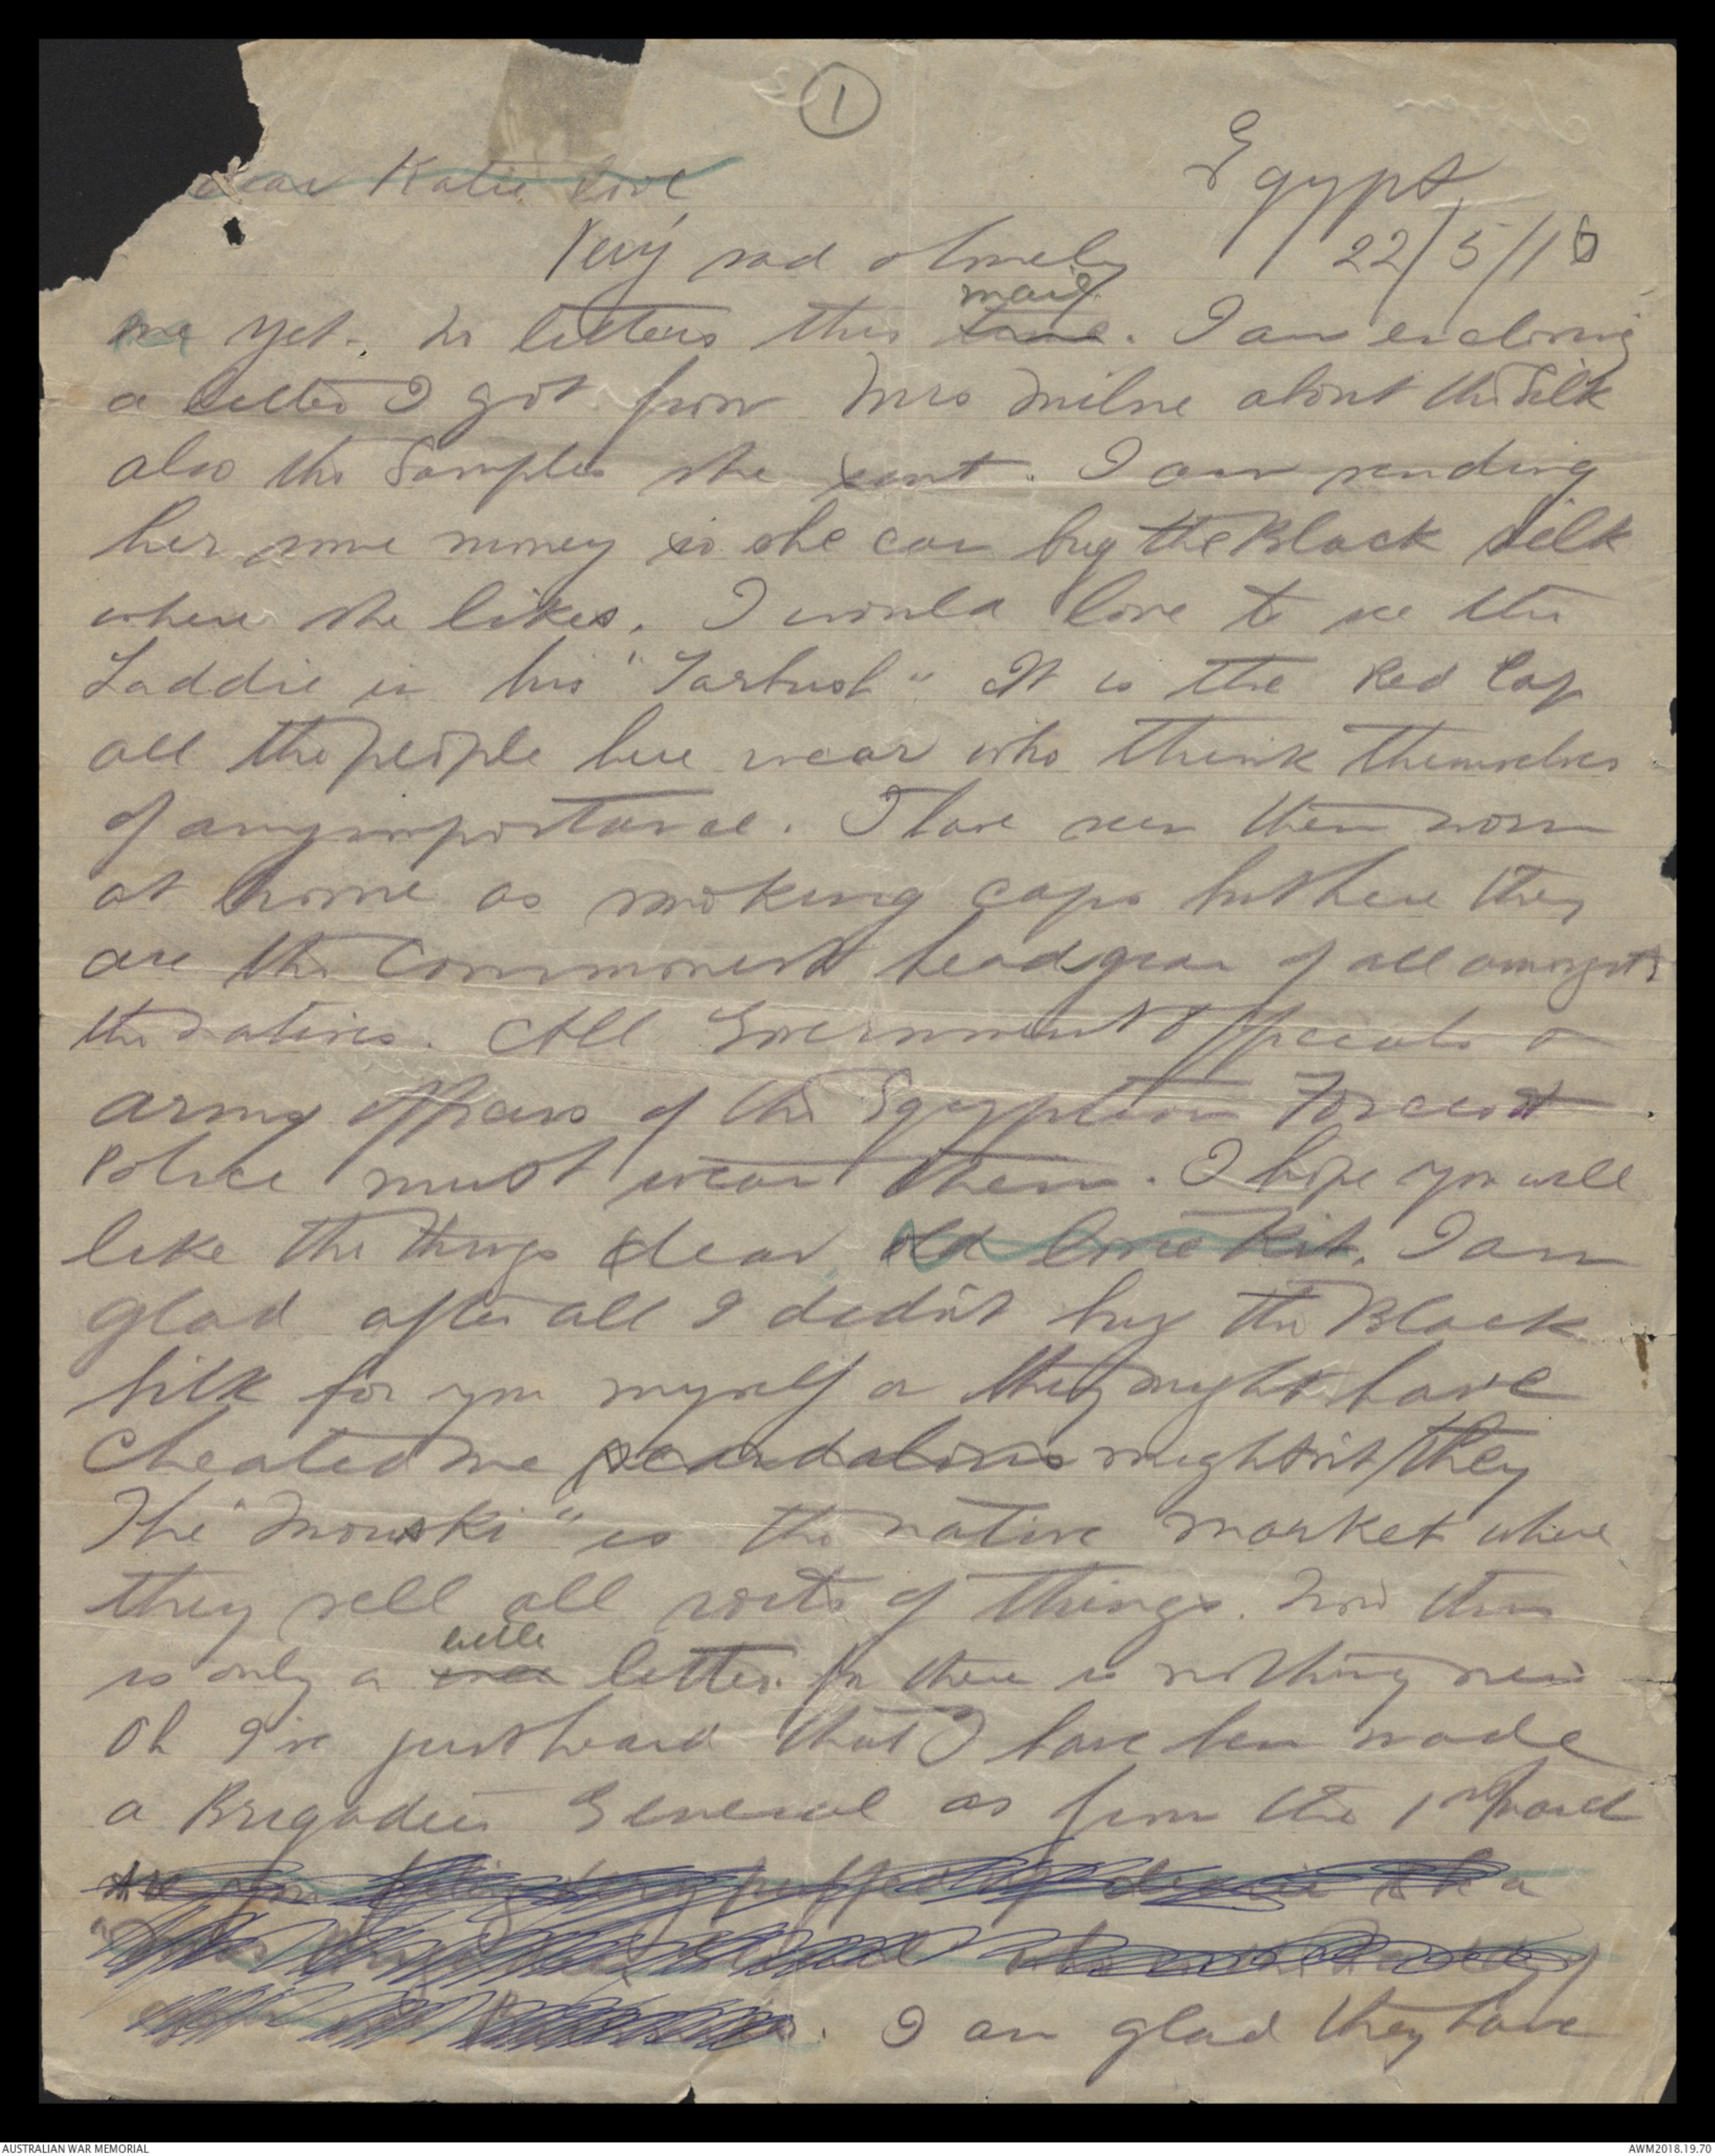 1
Egypt
dear Katie love
22/5/16
Very sad & lonely
me yet. No letters this time mail. I am enclosing
a letter I got from Mrs Milne about the Silk
also the Samples she sent. I am sending
her some money so she can buy the Black silk
where she likes. I would love to see the
Laddie in his "Tarbush" It is the Red Cap
all the people here wear who think themselves
of any importance. I have seen them worn
at home as smoking caps but here they
are the Commonest headgear of all amongst
the natives. All Government Officials &
army officers of the Egyptian Forces &
Police must wear them. I hope you will
like the things dear old love Kit. I am
glad after all I didn't buy the Black
silk for you myself or they might have
Cheated me scandalous mightn't they
The "Mouski" is the native market where
they sell all sorts of things. Now this
is only a wee little letter for there is nothing new
Oh I've just heard that I have been made
a Brigadier General as from the 1st March
Are you feeling very puffed up dearie
I am glad they have
AUSTRALIAN WAR MEMORIAL
AWM2018.19.70